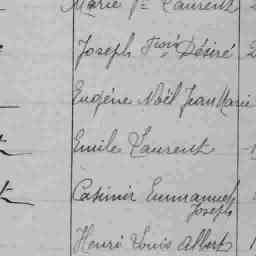 Marie Laurent
Joseph Désiré
Eugène Noël Jean Marie
Emile Laurent
Casimir Emmanuel
Joseph
Henri Louis Albert